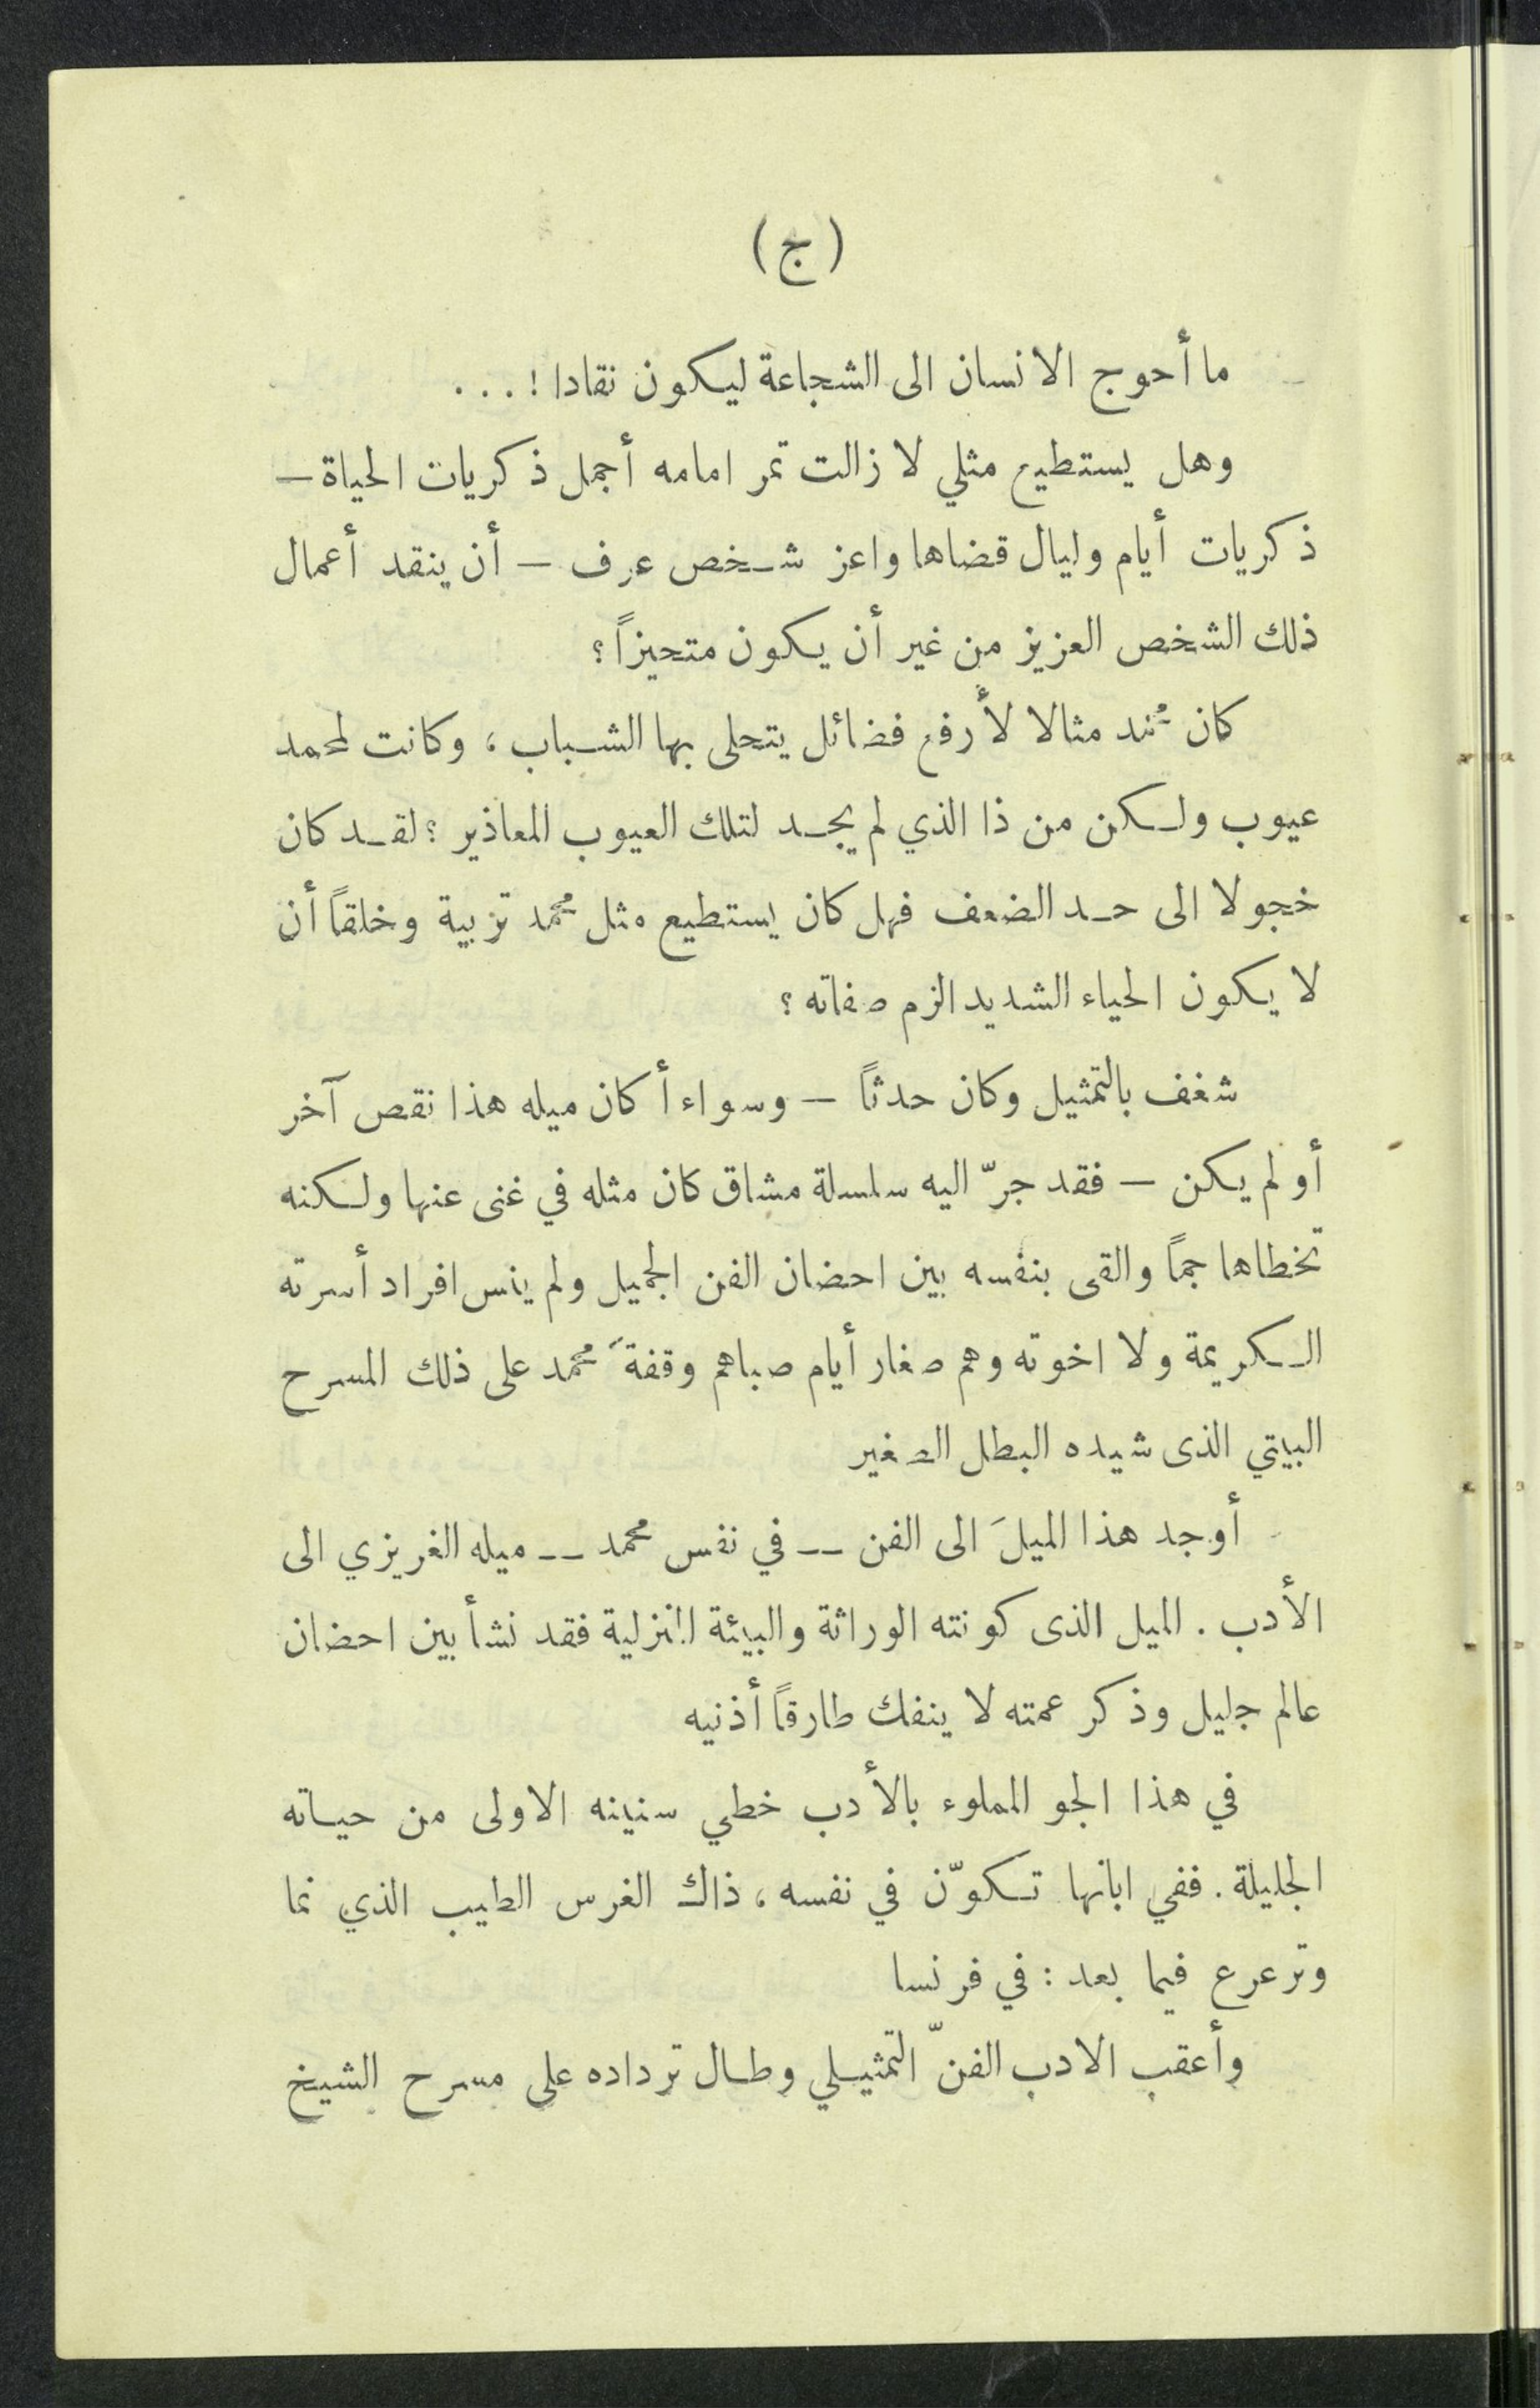 (ج)
ما أحوج الانسان الى الشجاعة ليكون نقادا ! . . .
وهل يستطيع مثلي لا زالت تمر امامه أجمل ذكريات الحياة —
ذكريات أيام وليال قضاها واعز شخص عرف — أن ينقد أعمال
ذلك الشخص العزيز من غير أن يكون متحيزاً ؟
كان محمد مثالا لأرفع فضائل يتحلى بها الشباب ، وكانت لمحمد
عيوب ولكن من ذا الذي لم يجد لتلك العيوب المعاذير ؟ لقد كان
خجولا الى حد الضعف فهل كان يستطيع مثل محمد تربية وخلقاً أن
لا يكون الحياء الشديد الزم صفاته ؟
شغف بالتمثيل وكان حدثاً — وسواء أكان ميله هذا نقص آخر
أو لم يكن — فقد جرّ اليه سلسلة مشاق كان مثله في غنى عنها ولكنه
تخطاها جماً والقى بنفسه بين احضان الفن الجميل ولم ينس افراد أسرته
الكريمة ولا اخوته وهم صغار أيام صباهم وقفةَ محمد على ذلك المسرح
البيتي الذى شيده البطل الصغير
أوجد هذا الميلَ الى الفن — في نفس محمد — ميله الغريزي الى
الأدب . الميل الذى كونته الوراثة والبيئة المنزلية فقد نشأ بين احضان
عالم جليل وذكر عمته لا ينفك طارقاً أذنيه
في هذا الجو المملوء بالأدب خطي سنينه الاولى من حياته
الجليلة . ففي ابانها تكوّن في نفسه ، ذاك الغرس الطيب الذي نما
وترعرع فيما بعد : في فرنسا
وأعقب الادب الفنّ التمثيلي وطال ترداده على مسرح الشيخ